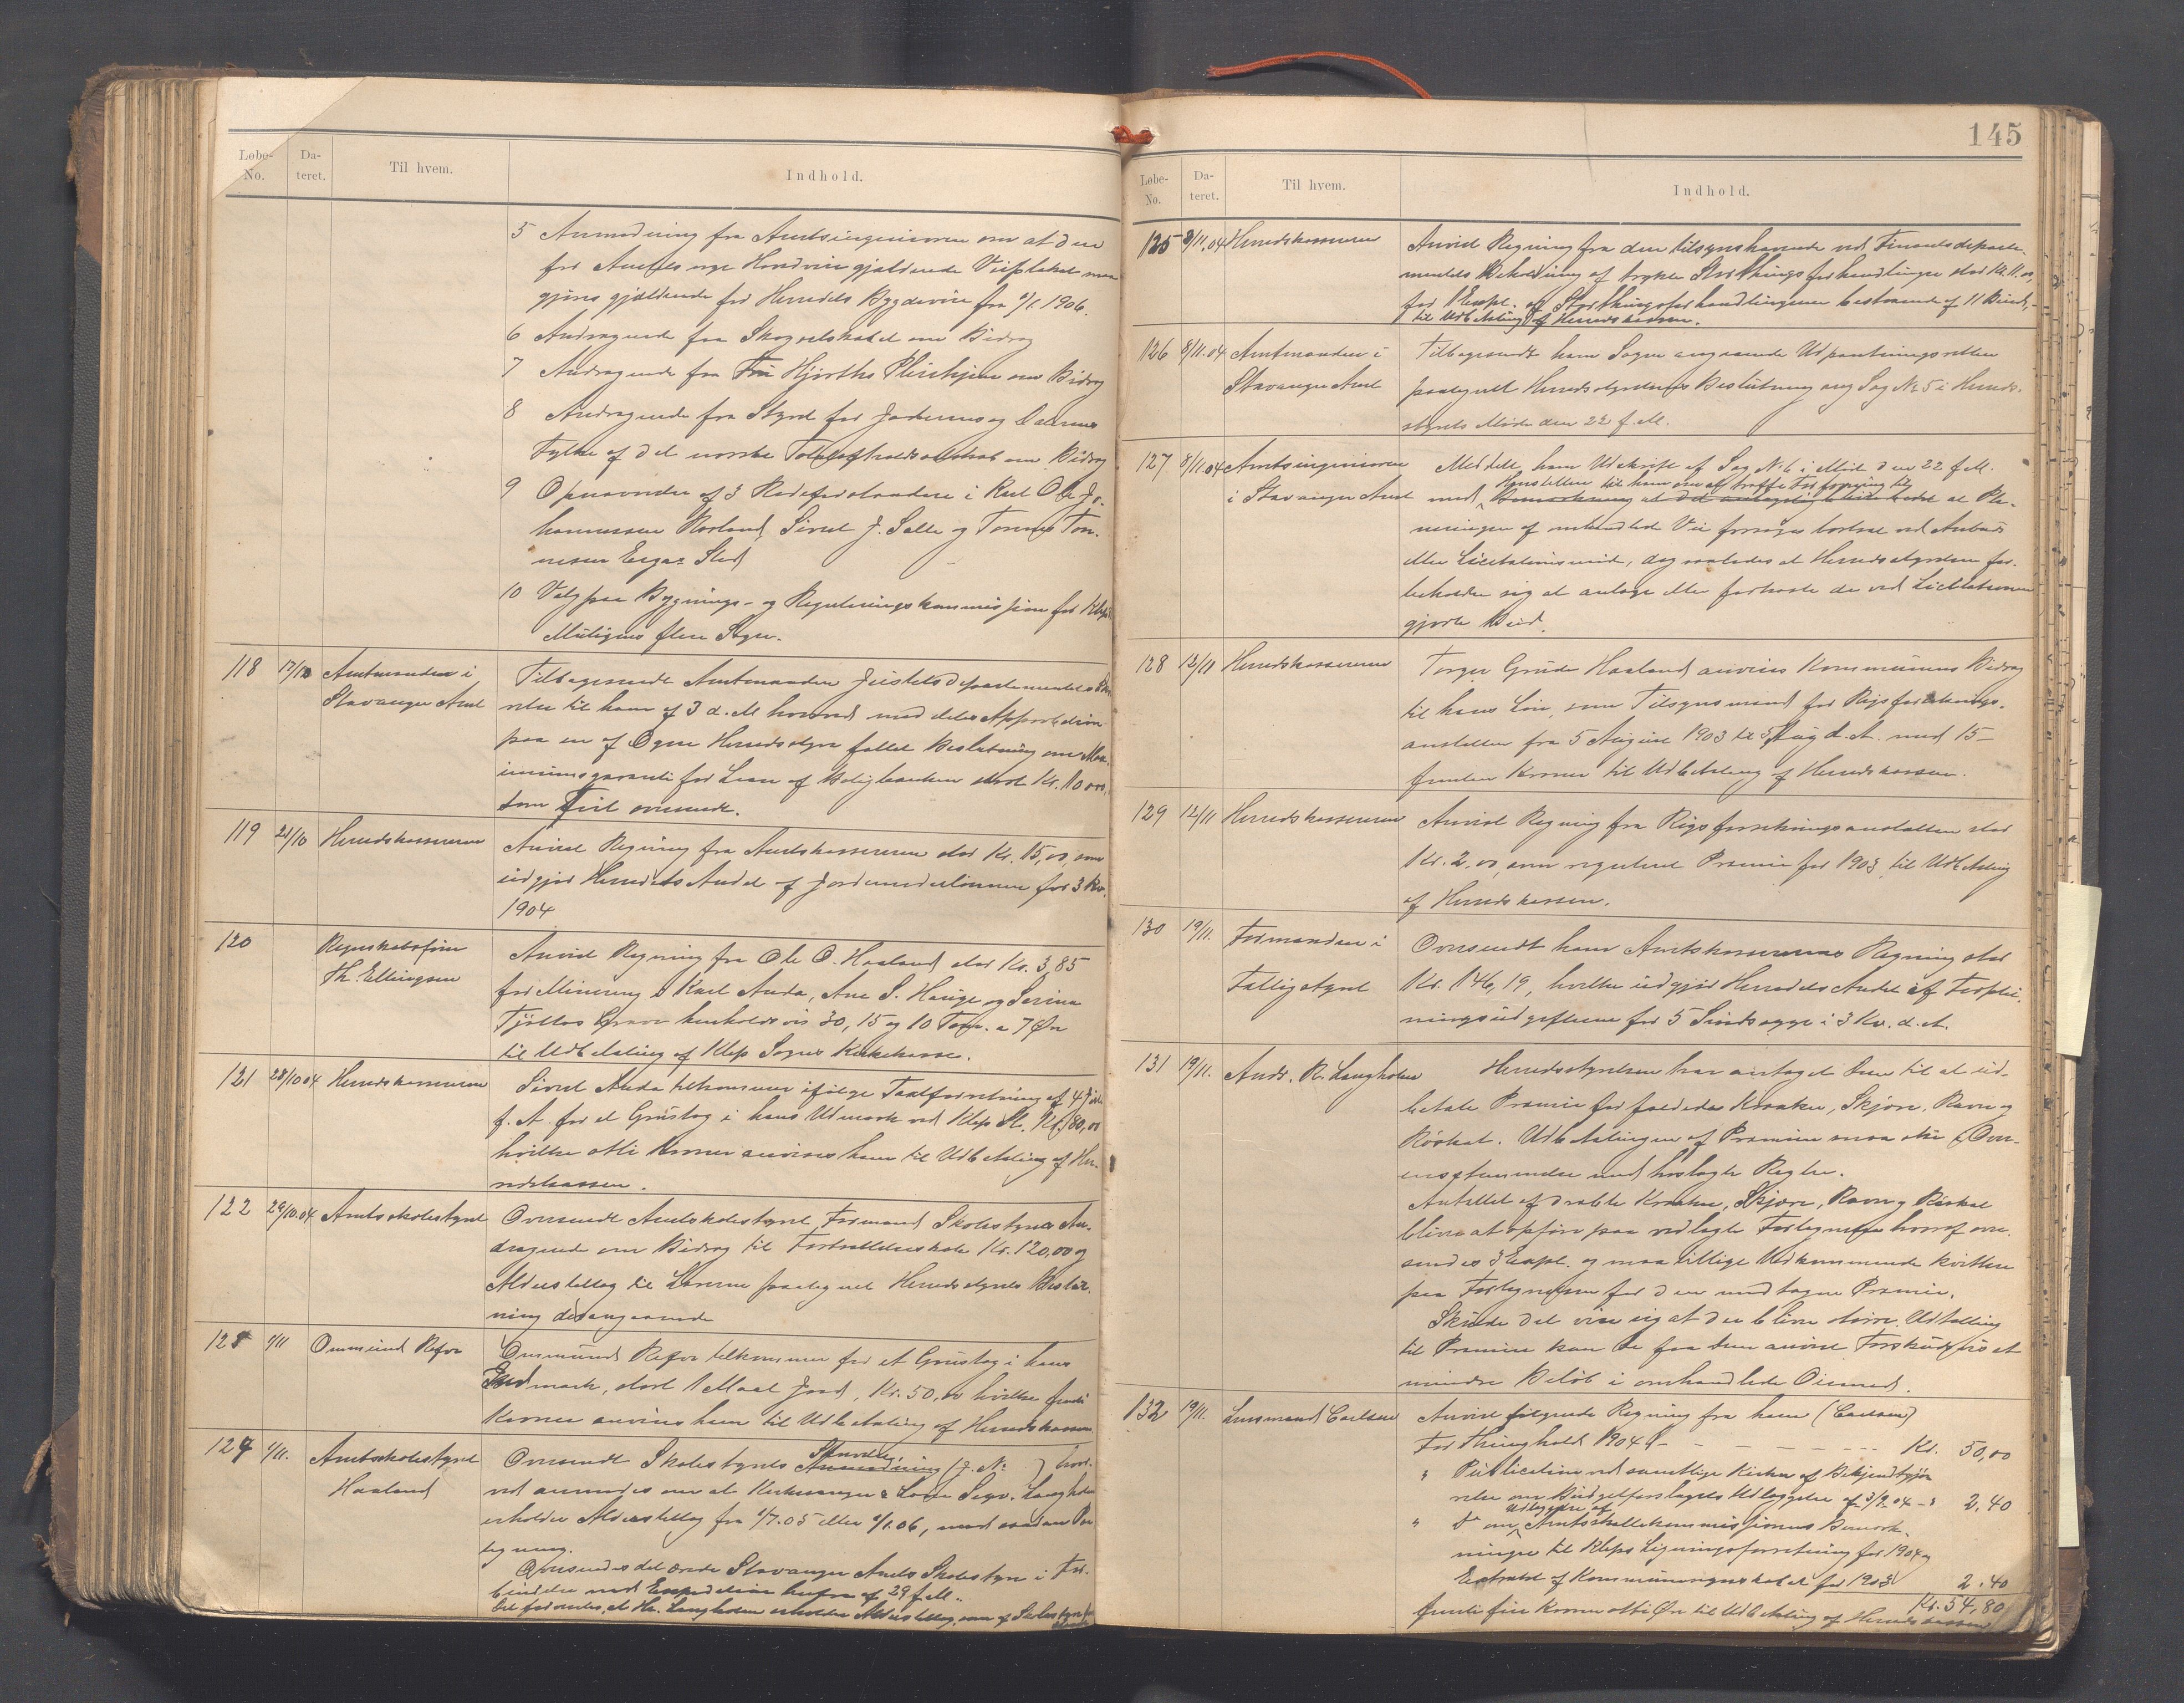 Løbe-No. Da-teret. Til hvem. Indhold.
5 Anmodning fra Amtsingeniøren om at den
for Amtets nye Hovedveie gjældende Veiplakat maa
gjøres gjældende for Herredets Bygdeveie fra 1/1 1906.
6 Andragende fra Skogselskabet om Bidrag
7 Andragende fra Hjorths Pleiehjem om Bidrag
8 Andragende fra Styret for Jæderens og Dalernes
Fylke af det norske Totalafholdsselskab om Bidrag
9 Opnævnelse af 3 Rodeforstandere i Sted Ole Jo-
hannessen Sivert J. Salte og Tønnes Tøn-
nesen Sted
10 Valg paa Bygnings- og Reguleringskommission for Klep
Muligens flere Sager.
118 17/10 Amtmanden i Stavanger Amt
Tilbagesendt Amtmanden Justitsdepartementets Skri-
velse til ham af 3 d. M. hvorved med dets Approbation
paa en af Ogne Herredsstyre fattet Beslutning om Max-
imumsgaranti for Laan af Boligbanken stort Kr. 10 000,
som Feil oversendt.
119 21/10 Herredskassereren
Anvist Regning fra Amtskassereren stor Kr. 15,00, som
udgjør Herredets Andel af Jordemoderlønnen for 3 Kv.
1904
120 Regnskabsfører Th. Ellingsen
Anvist Regning fra Ole O. Haaland stor Kr. 3,85
for Minering i Karl Anda, Ane S. Hauge og Serina
Tjøttas Grave henholdsvis 30, 15 og 10 Tom. a 7 Øre
til Udbetaling af Klep Sogns Kirkekasse.
121 28/10 04 Herredskassereren
Sivert Anda tilkommer ifølge Taxtforretning af
f. A. for et Grustag i hans Udmark ved Klep St. Kr. 80,00
hvilke otti Kroner anvises ham til Udbetaling af Her-
redskassen.
122 29/10.04 Amtsskolestyret
Oversendt Amtsskolestyret, Formand Skolestyrets An-
dragende om Bidrag til Fortsættelsesskole Kr. 120,00 og
Alderstillæg til Lærerne paategnet Herredsstyrets Beslut-
ning desangaaende
123 1/11 Ommund Refve
Ommund Refve tilkommer for et Grustag i hans
Indmark, stort 1 Maal Jord, Kr. 50,00 hvilke femti
Kroner anvises ham til Udbetaling af Herredskassen
124 1/11. Amtsskolestyret Haaland
Oversendt Skolestyrets Skrivelse (J. No ) hvor-
ved anmodes om at Kirkesanger & Lærer Sigv. Langholm
erholder Alderstillæg fra 1/7.05 eller 1/1.06, med saadan Paa-
tegning.
Oversendes det ærede Stavanger Amts Skolestyre i For-
bindelse med Expedition herfra af 29 f. M.
Det forordes, at Hr. Langholm erholder Alderstillæg, som af Skolestyret
145
Løbe-No. Da-teret. Til hvem. Indhold.
125 8/11.04 Herredskassereren
Anvist Regning fra den tilsynshavende ved Finantsdeparte-
mentets Beholdning af trykte Storthingsforhandlinger stor Kr. 11.00,
for 1 Expl. af Storthingsforhandlingerne bestaaende af 11 Bind,
til Udbetaling af Herredskassen.
126 8/11.04 Amtmanden i Stavanger Amt
Tilbagesendt ham Sagen angaaende Udpantningsretten
paategnet Herredsstyrelsens Beslutning ang Sag No 5 i Herreds-
styrets Møde den 22 f. M.
127 8/11.04 Amtsingeniøren i Stavanger Amt
Meddelt ham Udskrift af Sag No 6 i Møde den 22 f. M.
Henstillen til ham om at træffe Forføyning til
med at Pla-
neringen af omhandlede Vei forsøges bortsat ved Anbud
eller Licitationsvis, dog saaledes at Herredsstyrelsen for-
beholder sig at antage eller forkaste de ved Licitationen
gjorte Bud.
128 12/11 Herredskassereren
Torger Grude Haaland anvises Kommunens Bidrag
til hans Løn som Tilsynsmand for Rigsforsikrings-
anstalten fra 5 August 1903 til 5 Aug d. A. med 15 –
femten Kroner til Udbetaling af Herredskassen.
129 12/11 Herredskassereren
Anvist Regning fra Rigsforsikringsanstalten stor
Kr. 2.00, som reguleret Præmie for 1903 til Udbetaling
af Herredskassen.
130 19/11. Formanden i Fattigstyret
Oversendt ham Amtskassererens Regning stor
Kr. 146,19, hvilke udgjør Herredets Andel af Forplei-
ningsudgifterne for 5 Sindssyge i 3 Kv. d. A.
131 19/11. Ands. R. Langholen
Herredsstyrelsen har antaget Dem til at ud-
betale Præmie for fældede Kraaker, Skjære, Ravn og
Røskat. Udbetalingen af Præmien maa ske i Over-
ensstemmelse med hoslagte Regler.
Antallet af dræbte Kraaker, Skjære, Ravn og Røskat
bliver at opføre paa vedlagte Fortegnelse hvoraf over-
sendes 3 Expl. og maa tillige Vedkommende kvittere
paa Fortegnelsen for den modtagne Præmie.
Skulde det vise sig at der bliver større Udtælling
til Præmier kan De faa Dem anvist Forskudsvis et
mindre Beløb i omhandlede Øiemed.
132 19/11. Lensmand Carlsen
Anvist følgende Regning fra ham (Carlsen)
For Thinghold 1904 – – – – – – Kr. 50,00
" Publication ved samtlige Kirker af Bekjendtgjø-
relse om Budgetforslagets Udlæggelse af 3/9.04 – " 2.40
" Do om Udlæggelse af Amtsskattekommissionens Bemærk-
ninger til Kleps Ligningsforretning for 1904 og
Extrakt af Kommuneregnskabet for 1903 2.40
Kr. 54,80
femti fire Kroner otti Øre til Udbetaling af Herredskassen